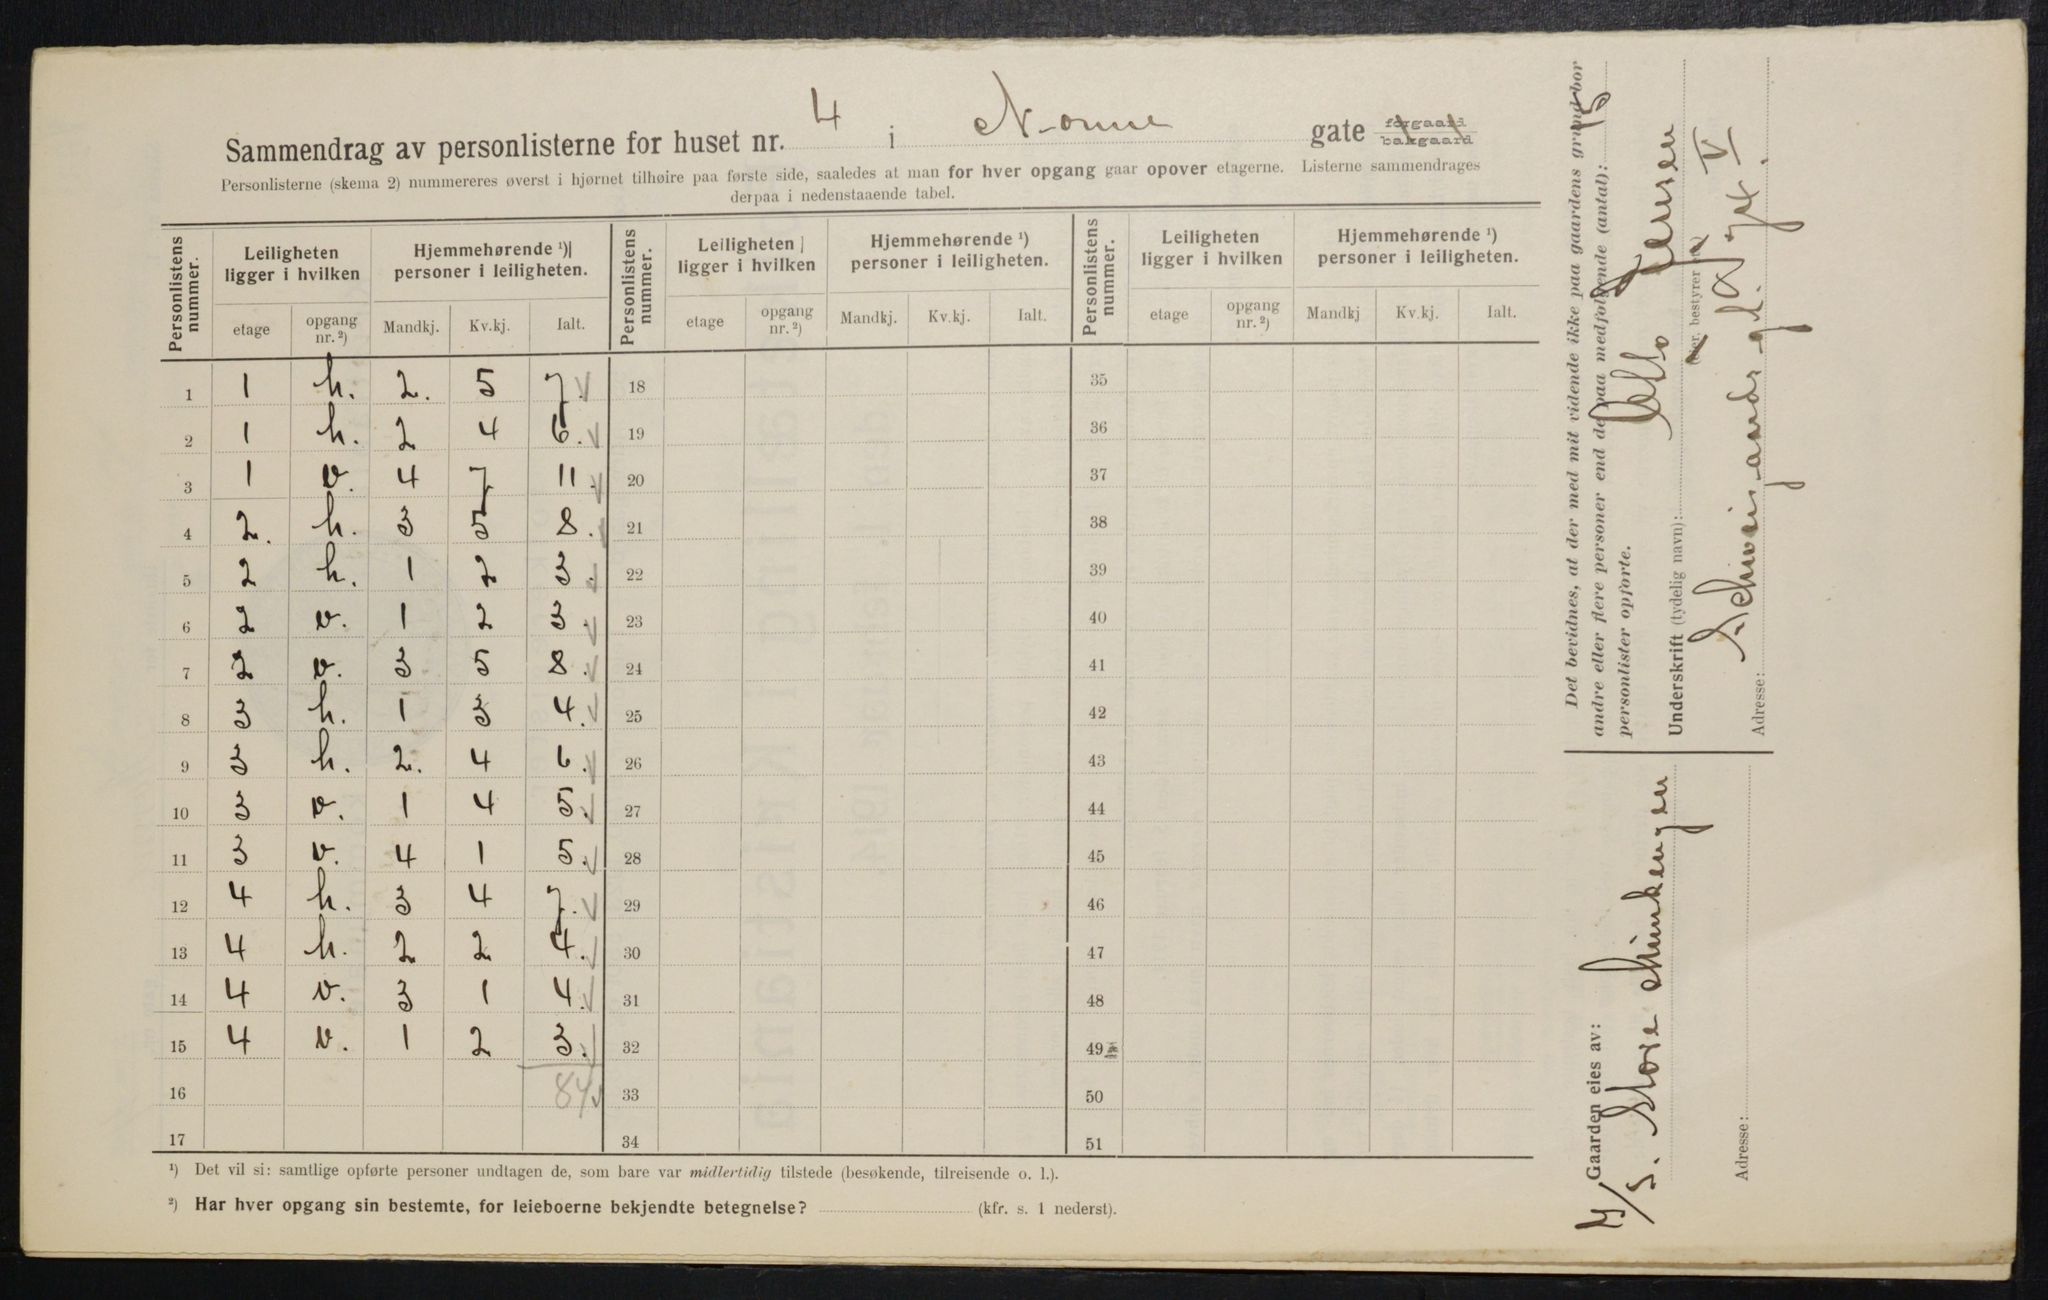 Sammendrag av personlisterne for huset nr. 4 i Nonne gate forgaard bakgaard
Personlisterne (skema 2) nummereres øverst i hjørnet tilhøire paa første side, saaledes at man for hver opgang gaar opover etagerne. Listerne sammendrages
derpaa i nedenstaaende tabel.
Personlistens nummer. Leiligheten ligger i hvilken Hjemmehørende ¹) personer i leiligheten. Personlistens nummer. Leiligheten ligger i hvilken Hjemmehørende ¹) personer i leiligheten. Personlistens nummer. Leiligheten ligger i hvilken Hjemmehørende ¹) personer i leiligheten.
etage opgang nr. ²) Mandkj. Kv.kj. Ialt. etage opgang nr. ²) Mandkj. Kv.kj. Ialt. etage opgang nr. ²) Mandkj Kv.kj. Ialt.
1 1 h. 2. 5 7. 18 35
2 1 h. 2 4 6. 19 36
3 1 v. 4 7 11. 20 37
4 2. h. 3 5 8. 21 38
5 2 h. 1 2 3. 22 39
6 2 v. 1 2 3. 23 40
7 2 v. 3 5 8. 24 41
8 3 h. 1 3 4. 25 42
9 3 h. 2. 4 6. 26 43
10 3 v. 1 4 5. 27 44
11 3 v. 4 1 5. 28 45
12 4 h. 3 4 7. 29 46
13 4 h. 2 2 4. 30 47
14 4 v. 3 1 4. 31 48
15 4 v. 1 2 3. 32 49
16 84 33 50
17 34 51
¹) Det vil si: samtlige opførte personer undtagen de, som bare var midlertidig tilstede (besøkende, tilreisende o. l.).
²) Har hver opgang sin bestemte, for leieboerne bekjendte betegnelse? (kfr. s. 1 nederst).
Det bevidnes, at der med mit vidende ikke paa gaardens grund bor
andre eller flere personer end de paa medfølgende (antal): 15
personlister opførte.
Underskrift (tydelig navn): Jensen
(eier, bestyrer etc.)
Adresse:
Gaarden eies av:
A/S. Store Munkengen
Adresse: